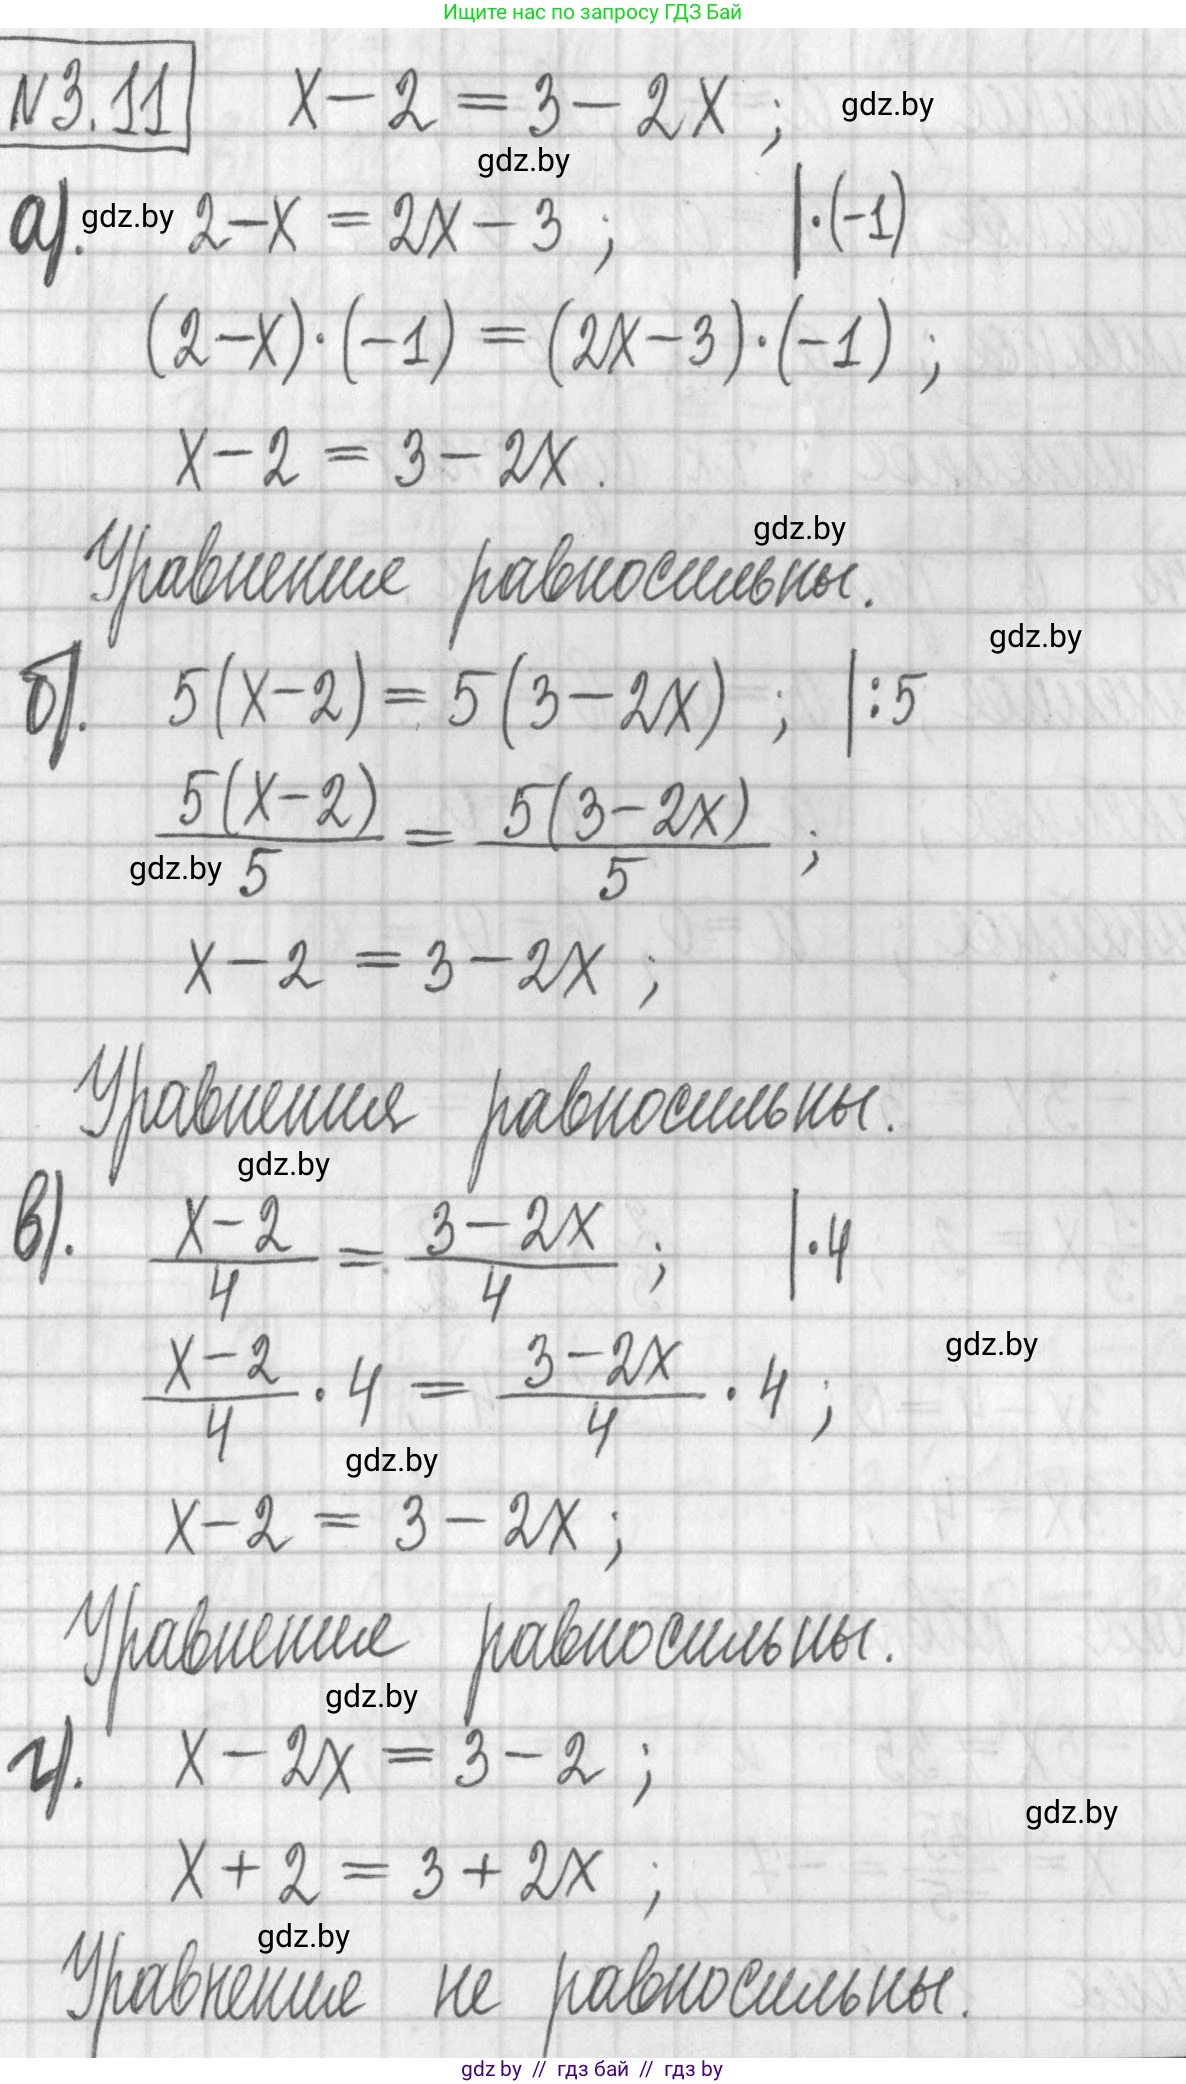 Ищите нас по запросу ГДЗ Бай
N3.11 x-2=3-2x; gdz.by
gdz.by
а). gdz.by 2-x=2x-3; |·(-1)
(2-x)·(-1)=(2x-3)·(-1);
x-2=3-2x.
gdz.by
Уравнения равносильны.
gdz.by
б). 5(x-2)=5(3-2x); |:5
5(x-2)/5=5(3-2x)/5;
gdz.by
x-2=3-2x;
Уравнения равносильны.
gdz.by
в). x-2/4=3-2x/4; |·4
gdz.by
x-2/4·4=3-2x/4·4;
gdz.by
x-2=3-2x;
Уравнения равносильны.
gdz.by
г). x-2x=3-2;
gdz.by
x+2=3+2x;
gdz.by
Уравнения не равносильны.
gdz by // гдз бай // гдз by